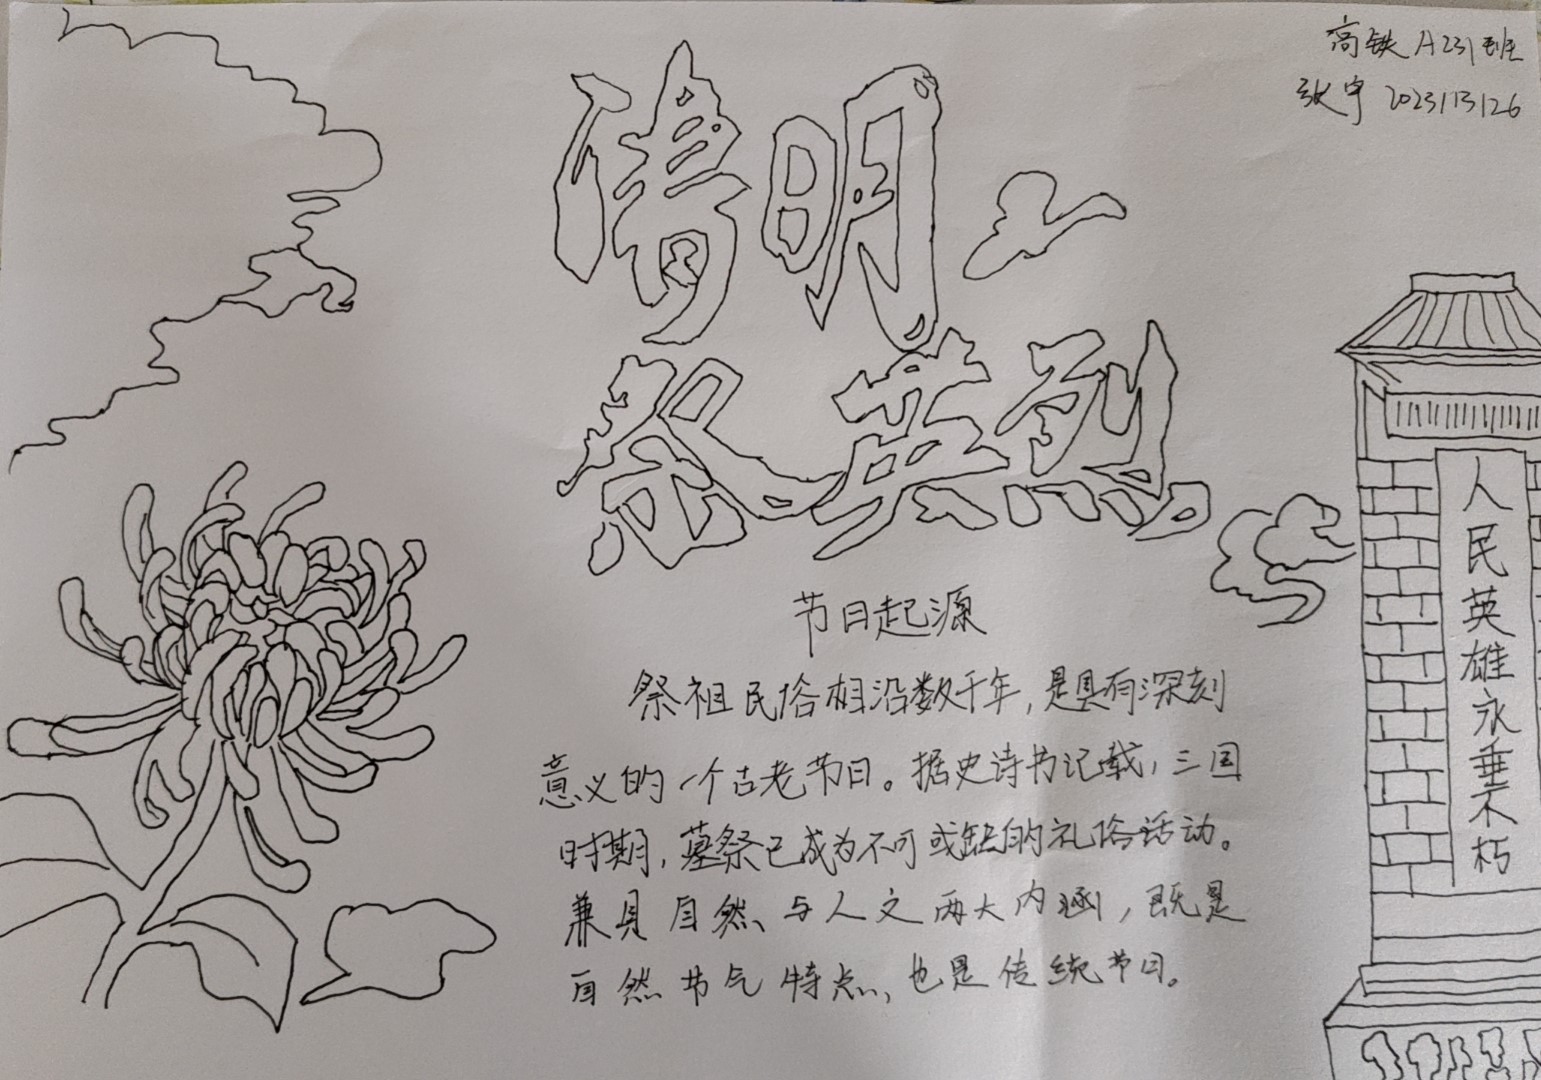 高铁A231班
张宇 2023113126
清明
祭英烈
节日起源
祭祖民俗相沿数千年,是具有深刻
意义的一个古老节日。据史诗书记载,三国
时期,墓祭已成为不可或缺的礼俗活动。
兼具自然、与人文两大内涵,既是
自然节气特点,也是传统节日。
人民英雄永垂不朽